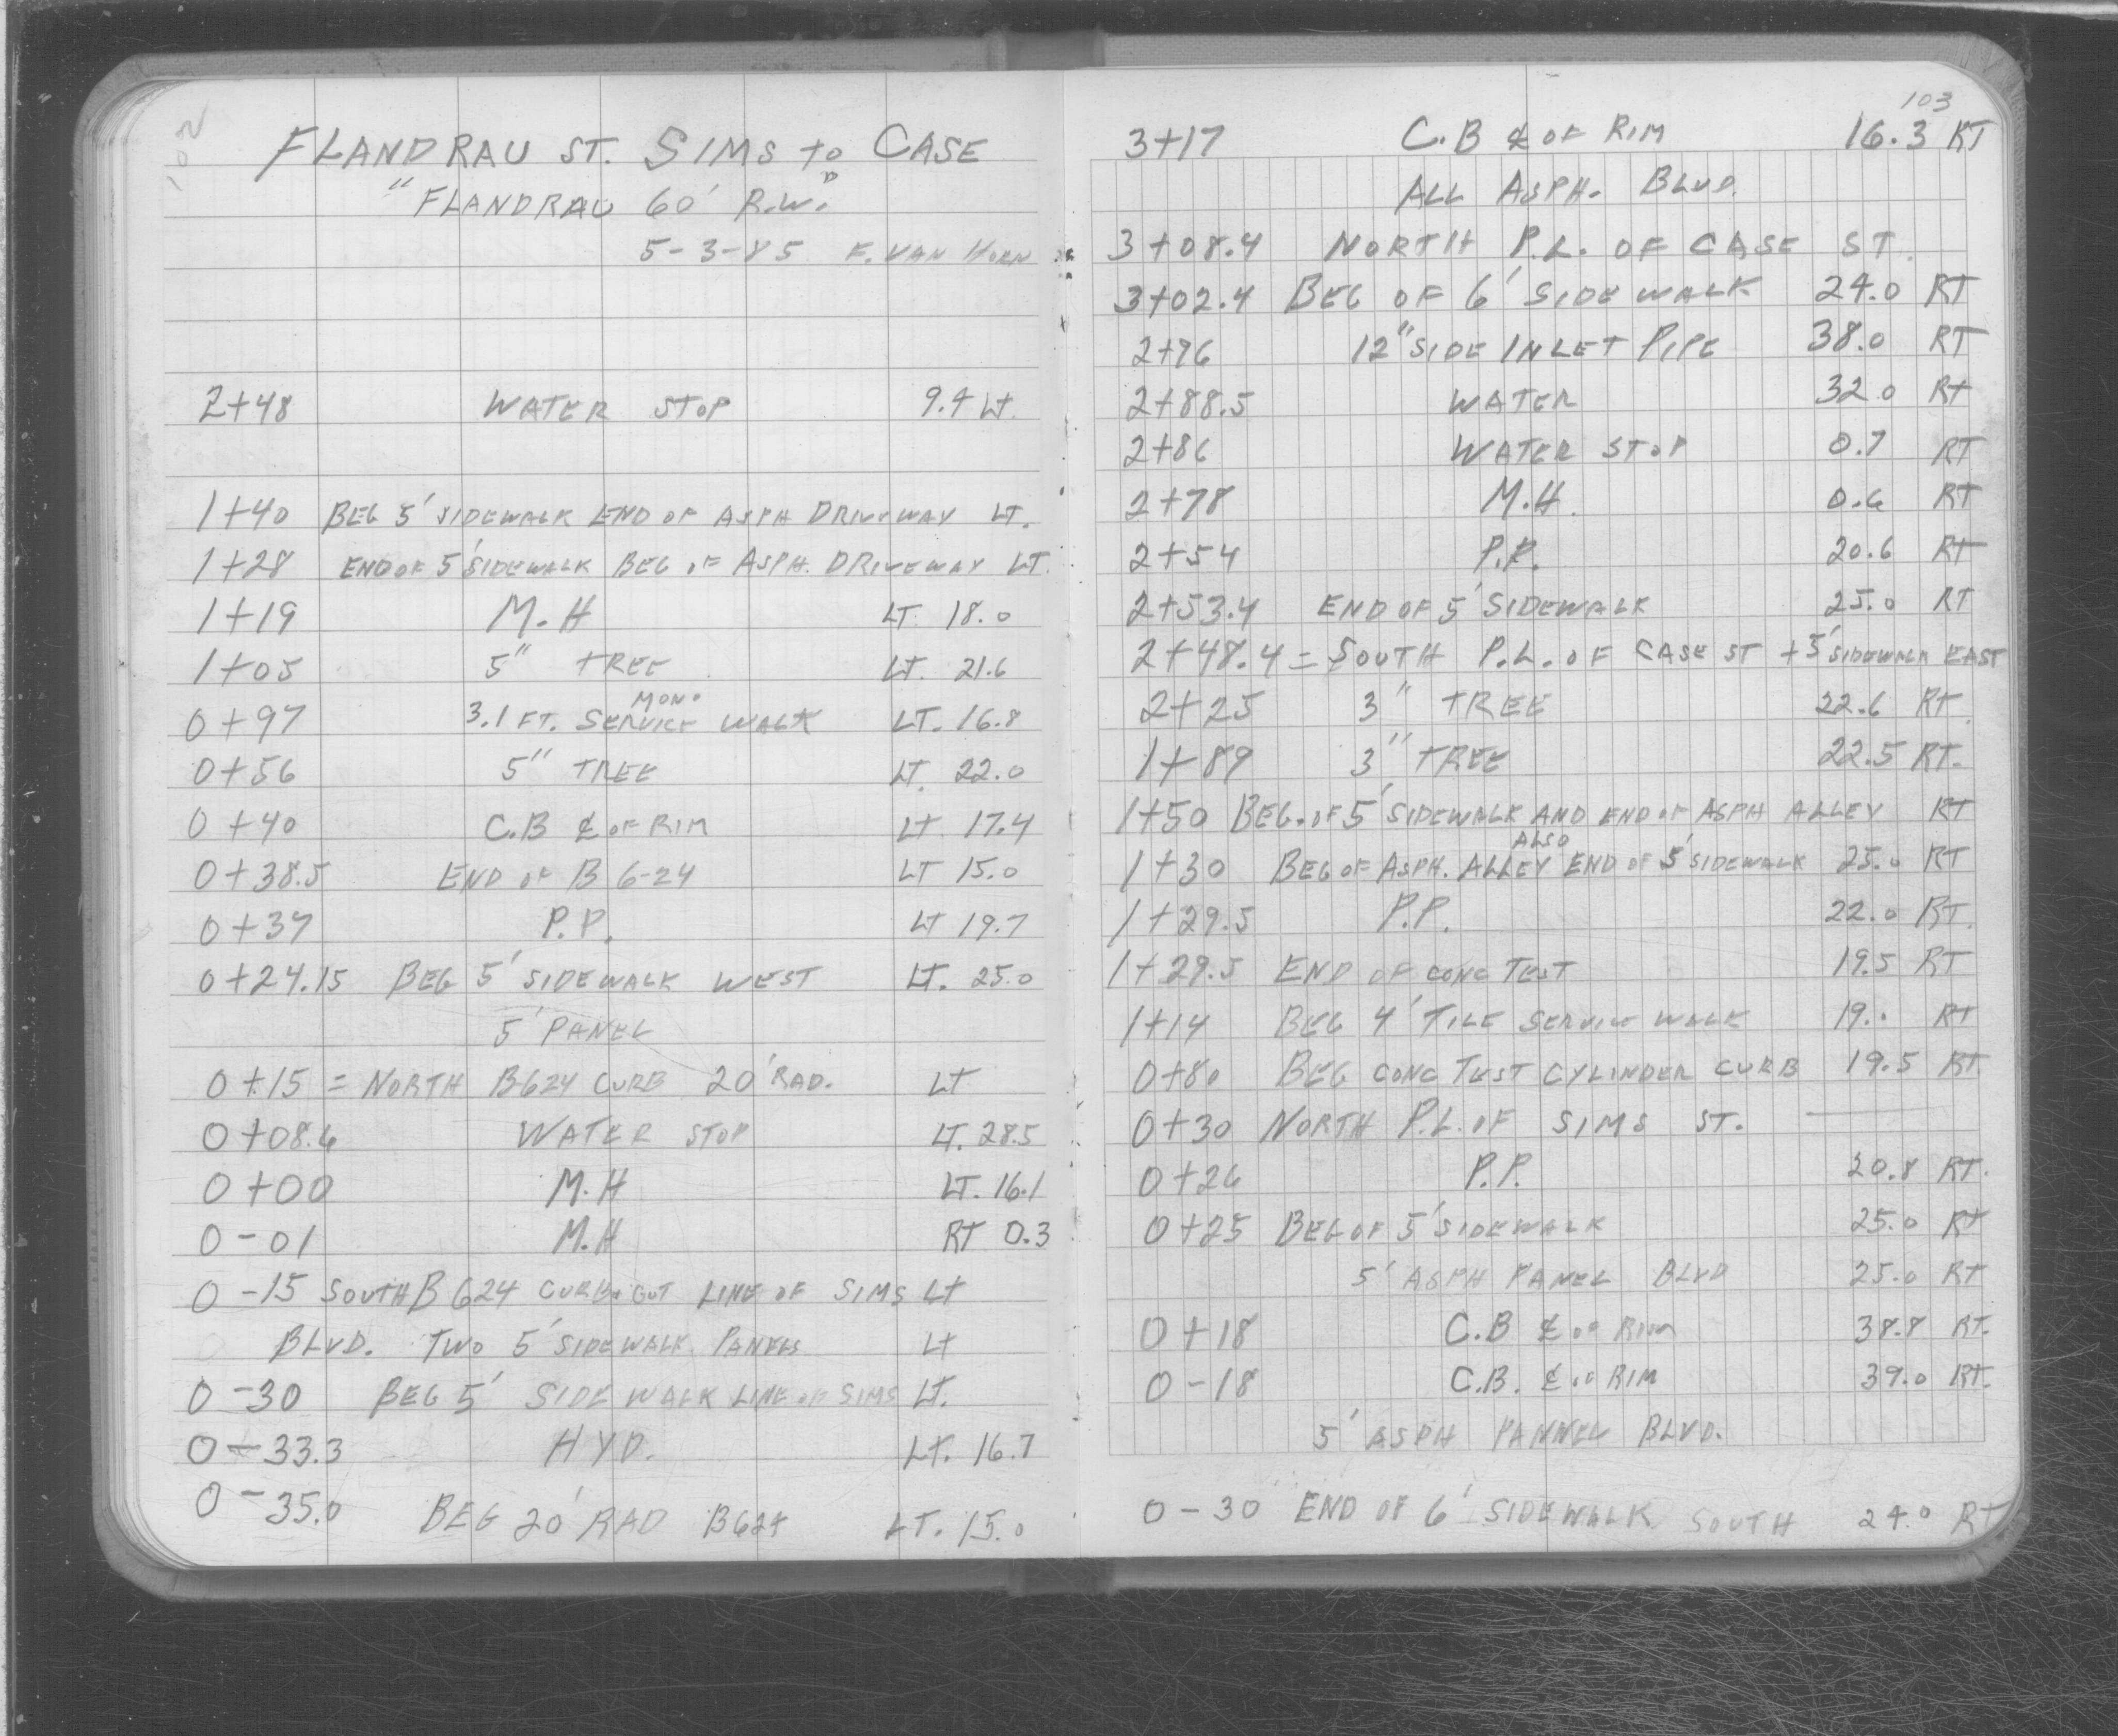 102
FLANDRAU ST. SIMS to CASE
"FLANDRAU 60' R.W."
5-3-85 F. VAN HORN
2+48 WATER STOP 9.4 LT.
1+40 BEG 5' SIDEWALK END OF ASPH DRIVEWAY LT.
1+28 END OF 5' SIDEWALK BEG OF ASPH. DRIVEWAY LT.
1+19 M.H LT. 18.0
1+05 5" TREE LT. 21.6
0+97 3.1 FT. MONO SERVICE WALK LT. 16.8
0+56 5" TREE LT. 22.0
0+40 C.B ℄ OF RIM LT 17.4
0+38.5 END OF B 6-24 LT 15.0
0+37 P.P. LT 19.7
0+24.15 BEG 5' SIDEWALK WEST LT. 25.0
5' PANEL
0+15 = NORTH B624 CURB 20' RAD. LT
0+08.6 WATER STOP LT. 28.5
0+00 M.H LT. 16.1
0-01 M.H RT 0.3
0-15 SOUTH B624 CURB. GUT LINE OF SIMS LT
BLVD. TWO 5' SIDEWALK PANELS LT
0-30 BEG 5' SIDEWALK LINE OF SIMS LT.
0-33.3 HYD. LT. 16.7
0-35.0 BEG 20' RAD B624 LT. 15.0
103
3+17 C.B ℄ OF RIM 16.3 RT
ALL ASPH. BLVD.
3+08.4 NORTH P.L. OF CASE ST.
3+02.4 BEG OF 6' SIDEWALK 24.0 RT
2+96 12" SIDE INLET PIPE 38.0 RT
2+88.5 WATER 32.0 RT
2+86 WATER STOP 0.7 RT
2+78 M.H. 0.6 RT
2+54 P.P. 20.6 RT
2+53.4 END OF 5' SIDEWALK 25.0 RT
2+48.4 = SOUTH P.L. OF CASE ST + 5' SIDEWALK EAST
2+25 3" TREE 22.6 RT.
1+89 3" TREE 22.5 RT.
1+50 BEG. OF 5' SIDEWALK AND END OF ASPH ALLEY RT
1+30 BEG OF ASPH. ALLEY ALSO END OF 5' SIDEWALK 25.0 RT
1+29.5 P.P. 22.0 RT.
1+29.5 END OF CONC TEST 19.5 RT
1+14 BEG 4' TILE SERVICE WALK 19.. RT
0+80 BEG CONC TEST CYLINDER CURB 19.5 RT.
0+30 NORTH P.L. OF SIMS ST.
0+26 P.P. 20.8 RT.
0+25 BEG OF 5' SIDEWALK 25.0 RT
5' ASPH PANEL BLVD 25.0 RT
0+18 C.B ℄ OF RIM 38.8 RT.
0-18 C.B. ℄ OF RIM 39.0 RT.
5' ASPH PANNEL BLVD.
0-30 END OF 6' SIDEWALK SOUTH 24.0 RT